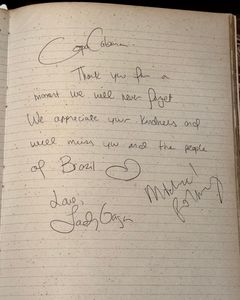 Copa Cabana
Thank you for a
moment we will never forget
We appreciate your kindness and
will miss you and the people
of Brazil
Love,
Lady Gaga